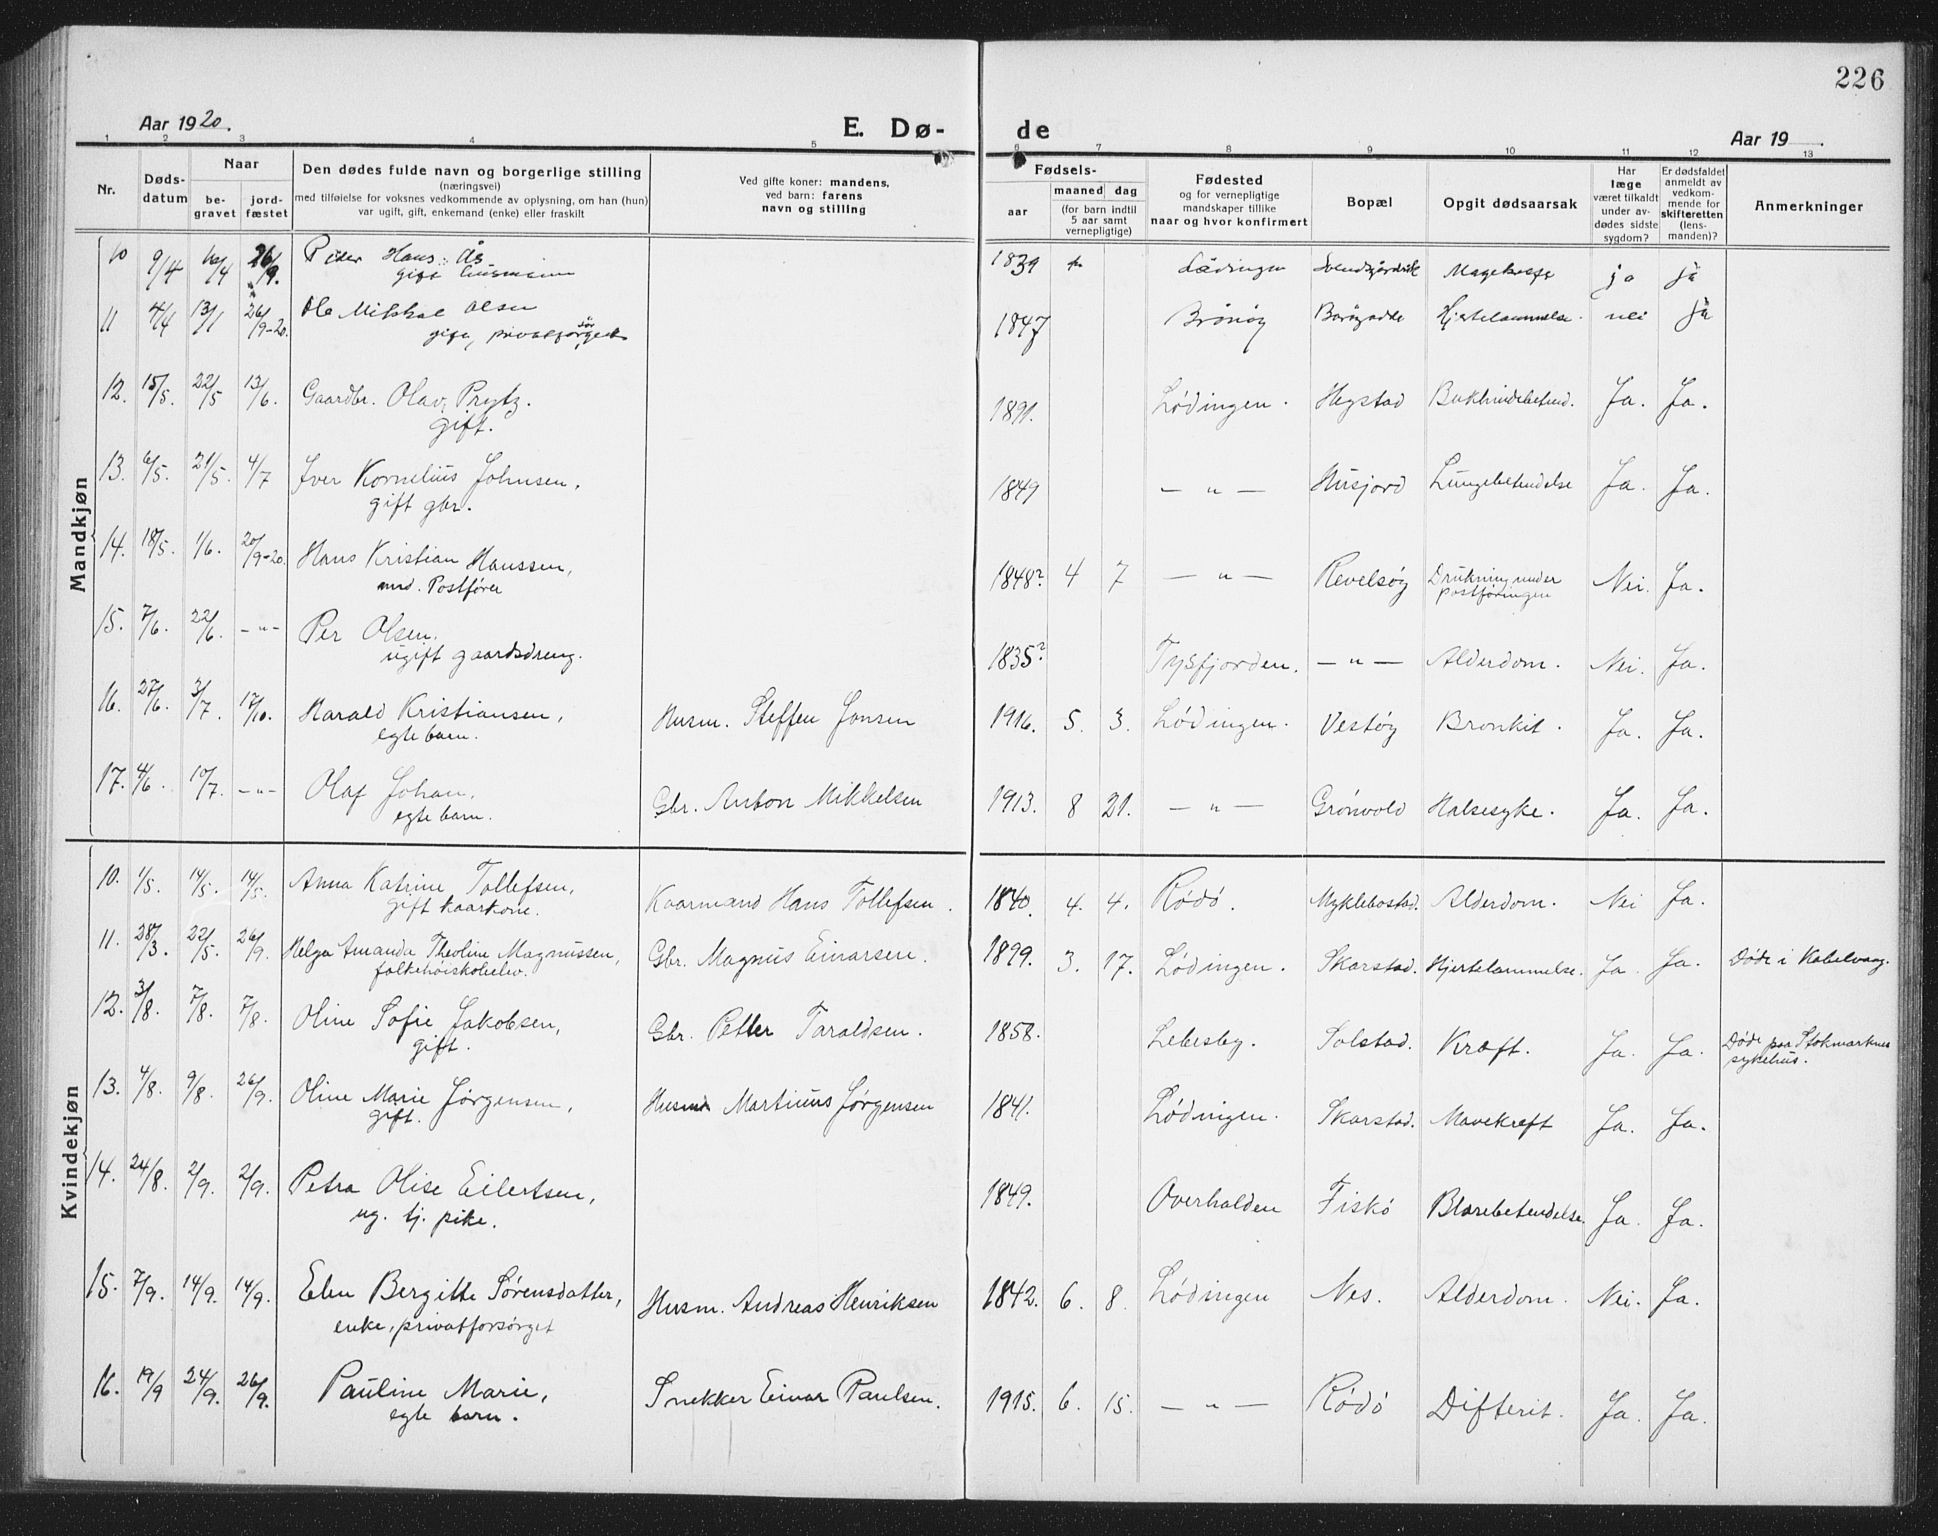 226
Aar 1920.
E. Dø-
de
Aar 19
1 2 3 4 5 6 7 8 9 10 11 12 13
Nr.
Døds-
datum
Naar
be-
gravet
jord-
fæstet
Den dødes fulde navn og borgerlige stilling
(næringsvei)
med tilføielse for voksnes vedkommende av oplysning, om han (hun)
var ugift, gift, enkemand (enke) eller fraskilt
Ved gifte koner: mandens,
ved barn: farens
navn og stilling
Fødsels-
aar
maaned dag
(for barn indtil
5 aar samt
vernepligtige)
Fødested
og for vernepligtige
mandskaper tillike
naar og hvor konfirmert
Bopæl
Opgit dødsaarsak
Har
læge
været tilkaldt
under av-
dødes sidste
sygdom?
Er dødsfaldet
anmeldt av
vedkom-
mende for
skifteretten
(lens-
manden)?
Anmerkninger
Mandkjøn
10 9/4 /4 26/9. Peder Hans. Ås 1839 Lødingen ja ja
gift husmann
11 4/4 13/ 26/9-20. Ole Mikkal Olsen 1847 Brönöy Hjertelammelse. nei ja
gift, privatforsørget
12. 15/5. 22/5 13/6. Gaardbr. Olav Prytz. 1891. Lødingen. Hegstad Bukhindebetend. Ja. Ja.
gift.
13. 6/5. 21/5. 4/7 Iver Kornelius Johnsen, 1849 — " — Husjord Lungebetendelse Ja. Ja.
gift gbr.
14. 18/5. 1/6. 20/9-20. Hans Kristian Hanssen, 1848? 4 7 — " — Revelsøy Drukning under Nei. Ja.
postføringen
Postfører
15. 7/6. 22/6. - " - Per Olsen. 1835? Tysfjorden. — " — Alderdom. Nei. Ja.
ugift gaardsdreng.
16. 27/6. 3/7. 17/10. Harald Kristiansen, Husm. Steffen Jonsen 1916. 5. 3. Lødingen. Vestøy Bronkit. Ja. Ja.
egte barn.
17. 4/6. 10/7. - " - Olaf Johan, Gbr. Anton Mikkelsen 1913. 8 21. — " — Grönvold Halsesyke. Ja. Ja.
egte barn.
Kvindekjøn
10. 1/5. 14/5. 14/5. Anna Katrine Tollefsen, Kaarmand Hans Tollefsen. 1840. 4. 4. Rödö. Myklebostad. Alderdom. Nei Ja.
gift kaarkone.
11. 28/3. 22/5. 26/9. Helga Amanda Theoline Magnussen, Gbr. Magnus Einarsen. 1899. 3. 17. Lødingen. Skarstad. Hjertelammelse. Ja. Ja. Døde i Kabelvaag.
folkehöiskoleelev.
12. 3/8. 7/8. 7/8. Oline Sofie Jakobsen, Gbr. Petter Taraldsen. 1858. Lebesby. Solstad. Kræft. Ja. Ja. Døde paa Stokmarknes
sykehus.
gift.
13. 4/8. 9/8. 26/9. Oline Marie Jørgensen, Husmd Martinus Jørgensen 1841. Lødingen. Skarstad. Mavekræft Ja. Ja.
gift.
14. 24/8. 2/9. 2/9. Petra Olise Eilertsen, 1849. Overhalden Fiskö Blærebetendelse. Ja. Ja.
ug. tj. pike.
15. 7/9. 14/9. 14/9. Elen Bergitte Sørensdatter, Husm. Andreas Henriksen 1842. 6. 8. Lødingen Nes. Alderdom. Nei. Ja.
enke, privatforsørget
16. 19/9 24/9. 26/9. Pauline Marie, Snekker Einar Paulsen. 1915. 6. 15. — " — Rödö Difterit. Ja. Ja.
egte barn.